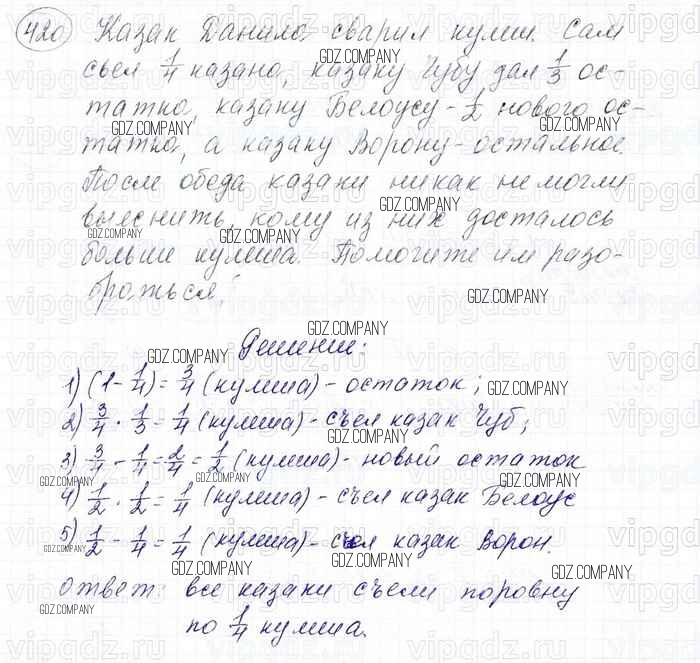 420 Казак Данило сварил кулиш. Сам
съел 1/4 казана, казаку Чубу дал 1/3 ос-
татка, казаку Белоусу - 1/2 нового ос-
татка, а казаку Ворону - остальное.
После обеда казаки никак не могли
выяснить, кому из них досталось
больше кулиша. Помогите им разо-
браться!
Решение:
1) (1 - 1/4) = 3/4 (кулиша) - остаток;
2) 3/4 · 1/3 = 1/4 (кулиша) - съел казак Чуб;
3) 3/4 - 1/4 = 2/4 = 1/2 (кулиша) - новый остаток
4) 1/2 · 1/2 = 1/4 (кулиша) - съел казак Белоус
5) 1/2 - 1/4 = 1/4 (кулиша) - съел казак Ворон.
Ответ: все казаки съели поровну
по 1/4 кулиша.
GDZ.COMPANY
vipgdz.com